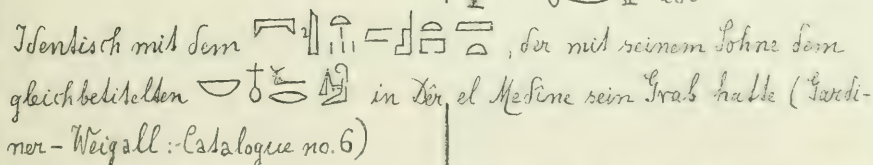 Identisch mit dem , der mit seinem Sohne dem
gleichbetitelten in Dêr el Medine sein Grab hatte (Gardi-
ner - Weigall : Catalogue no. 6)